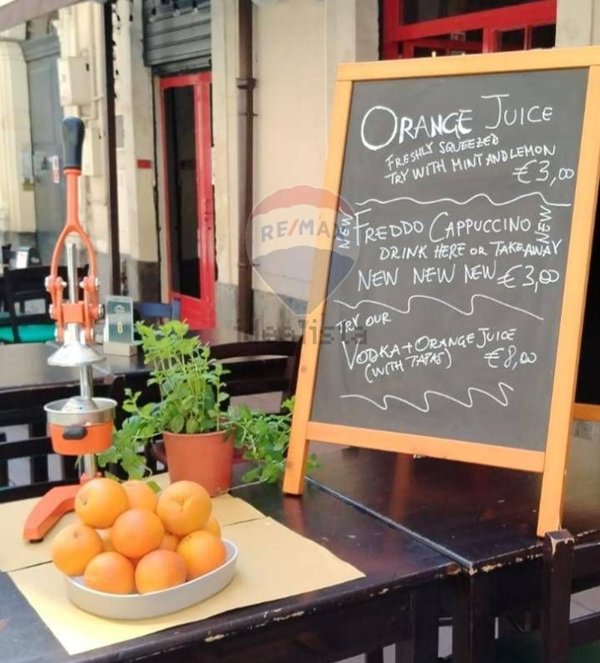 ORANGE JUICE
FRESHLY SQUEEZED
TRY WITH MINT AND LEMON
€3,00
NEW FREDDO CAPPUCCINO NEW
DRINK HERE OR TAKEAWAY
NEW NEW NEW €3,00
TRY OUR
VODKA + ORANGE JUICE
(WITH TAPAS) €8,00
RE/MAX
idealista